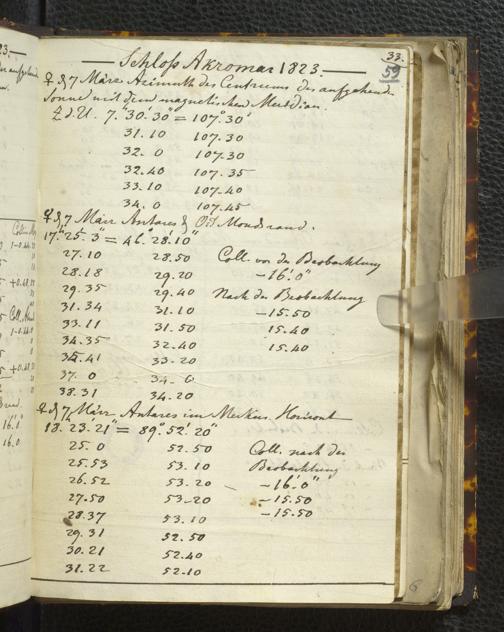 33.
59
Schloss Akromar 1823.
♀ d 7 März Azimuth des Centrums des aufgehende
Sonne mit dem magnetischen Meridian.
Z. d. U. 7. 30. 30" = 107° 30'
31. 10 107. 30
32. 0 107. 30
32. 40 107. 35
33. 10 107. 40
34. 0 107. 45
♀ d 7 März Antares & Ost Mondsrand.
17. 25. 3" = 46° 28. 10"
27. 10 28. 50 Coll. vor der Beobachtung
28. 18 29. 20 – 16. 0"
29. 35 29. 40 Nach der Beobachtung
31. 34 31. 10 – 15. 50
33. 11 31. 50 15. 40
34. 35 32. 40 15. 40
35. 41 33. 20
37. 0 34. 0
38. 31 34. 20
♀ d 7 März Antares im Merkur. Horizont
18. 23. 21" = 89° 52' 20"
25. 0 52. 50 Coll. nach der
25. 53 53. 10 Beobachtung
26. 52 53. 20 – 16. 0"
27. 50 53. 20 – 15. 50
28. 37 53. 10 – 15. 50
29. 31 52. 50
30. 21 52. 40
31. 22 52. 10
6